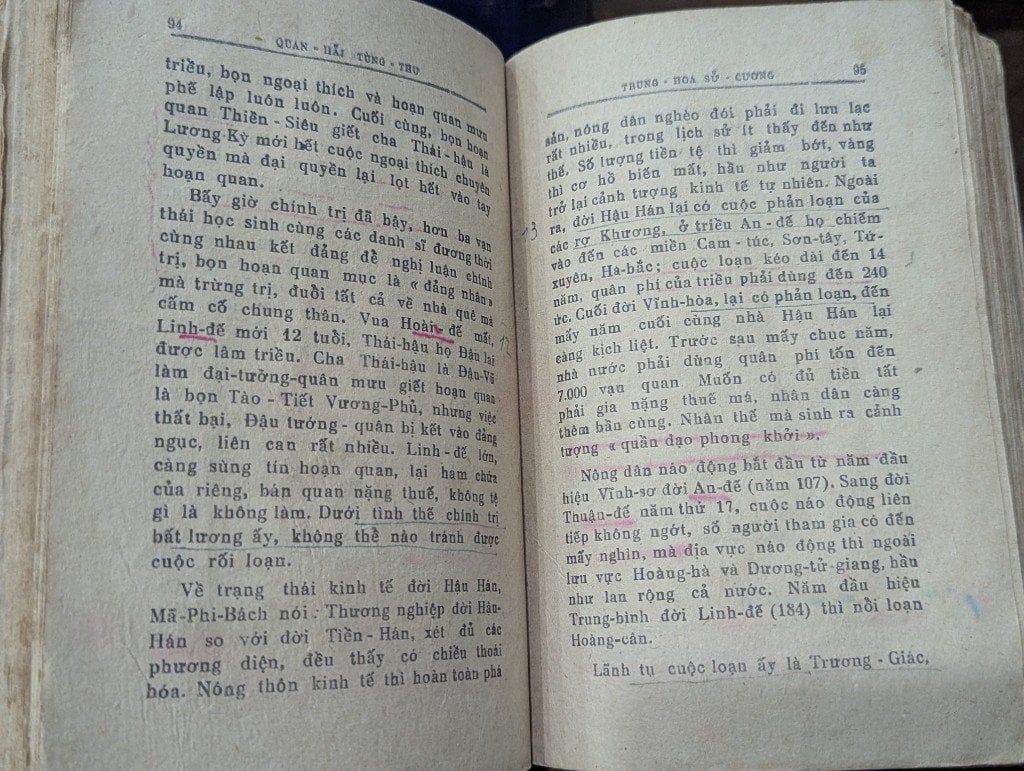 94
QUAN - HẢI TÙNG - THƯ
triều, bọn ngoại thích và hoạn quan mưu
phế lập luôn luôn. Cuối cùng, bọn hoạn
quan Thiền - Siêu giết cha Thái - hậu là
Lương-Kỳ mới hết cuộc ngoại thích chuyên
quyền mà đại quyền lại lọt hết vào tay
hoạn quan.
Bấy giờ chính trị đã bậy, hơn ba vạn
thái học sinh cùng các danh sĩ đương thời
cùng nhau kết đảng đề nghị luận chính
trị, bọn hoạn quan mục là « đảng nhân »
mà trừng trị, đuổi tất cả về nhà quê mà
cấm cố chung thân. Vua Hoàn đế mất,
Linh-đế mới 12 tuổi, Thái-hậu họ Đậu lại
được lâm triều. Cha Thái-hậu là Đậu-Vũ
làm đại-tướng-quân mưu giết hoạn quan
là bọn Tào - Tiết Vương-Phủ, nhưng việc
thất bại, Đậu tướng - quân bị kết vào đảng
ngục, liên can rất nhiều. Linh - đế lớn,
càng sùng tín hoạn quan, lại ham chứa
của riêng, bán quan nặng thuế, không tệ
gì là không làm. Dưới tình thế chính trị
bất lương ấy, không thể nào tránh được
cuộc rối loạn.
Về trạng thái kinh tế đời Hậu Hán,
Mã-Phi-Bách nói : Thương nghiệp đời Hậu-
Hán so với đời Tiền - Hán, xét đủ các
phương diện, đều thấy có chiều thoái
hóa. Nông thôn kinh tế thì hoàn toàn phá
12
TRUNG - HOA SỬ - CƯƠNG
95
sản, nông dân nghèo đói phải đi lưu lạc
rất nhiều, trong lịch sử ít thấy đến như
thế. Số lượng tiền tệ thì giảm bớt, vàng
thì cơ hồ biến mất, hầu như người ta
trở lại cảnh tượng kinh tế tự nhiên. Ngoài
ra, đời Hậu Hán lại có cuộc phản loạn của
các rợ Khương, ở triều An - đế họ chiếm
vào đến các miền Cam - túc, Sơn-tây, Tứ-
xuyên, Ha-bắc; cuộc loạn kéo dài đến 14
năm, quân phí của triều phải dùng đến 240
ức. Cuối đời Vĩnh-hòa, lại có phản loạn, đến
mấy năm cuối cùng nhà Hậu Hán lại
càng kịch liệt. Trước sau mấy chục năm,
nhà nước phải dùng quân phí tốn đến
7.000 vạn quan Muốn có đủ tiền tất
phải gia nặng thuế má, nhân dân càng
thêm bần cùng. Nhân thế mà sinh ra cảnh
tượng « quần đạo phong khởi ».
Nông dân náo động bắt đầu từ năm đầu
hiệu Vĩnh-sơ đời An-đế (năm 107). Sang đời
Thuận-đế năm thứ 17, cuộc náo động liên
tiếp không ngớt, số người tham gia có đến
mấy nghìn, mà địa vực náo động thì ngoài
lưu vực Hoàng-hà và Dương-tử-giang, hầu
như lan rộng cả nước. Năm đầu hiệu
Trung-bình đời Linh-đế (184) thì nổi loạn
Hoàng-cân.
Lãnh tụ cuộc loạn ấy là Trương - Giác,
13